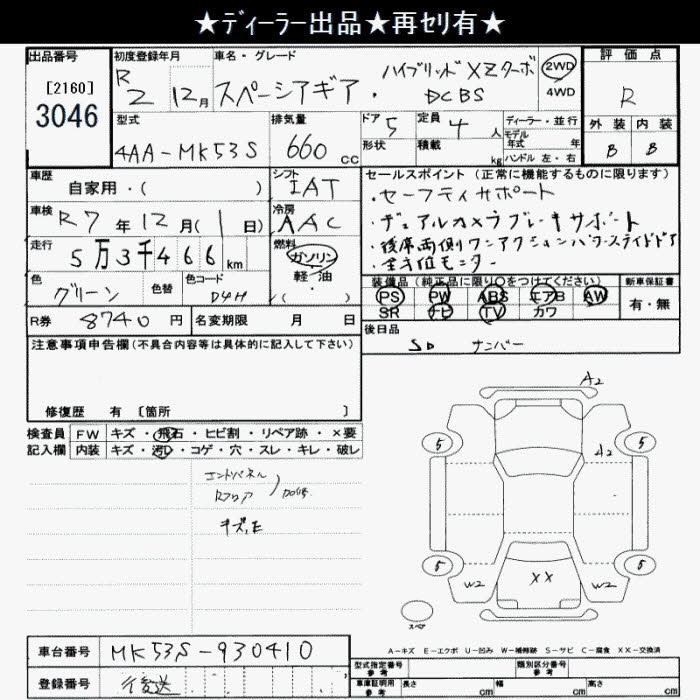 ★ディーラー出品★再セリ有★
出品番号
[2160]
3046
初度登録年月
R 2 12月
車名・グレード
スペーシアギア・ハイブリッドXZターボ
DCBS
2WD
4WD
評価点
R
外装 内装
B B
型式
4AA-MK53S
排気量
660 cc
ドア 5
形状
定員 4 人
積載 kg
ディーラー・並行
モデル年式 年
ハンドル 左・右
車歴
自家用・( )
シフト
IAT
車検 R7年12月(1日)
冷房
AAC
走行
5万3千466km
燃料
ガソリン
軽・油
・
色
グリーン
色替
色コード
D4H
R券 8740円
名変期限 月 日
セールスポイント(正常に機能するものに限ります)
・セーフティサポート
・デュアルカメラブレーキサポート
・後席両側ワンアクションパワースライドドア
・全方位モニター
装備品(純正品に限り○をつけてください)
PS PW ABS エアB AW
SR ナビ TV カワ
新車保証書
有・無
後日品
SD ナンバー
注意事項申告欄(不具合内容等は具体的に記入して下さい)
修復歴 有 [箇所 ]
検査員
記入欄
FW キズ・飛石・ヒビ割・リペア跡・×要
内装 キズ・汚れ・コゲ・穴・スレ・キレ・破レ
エンドパネル
Rフロア
キズ,E
A2
5
5
A2
5
5
W2
XX
W2
スペア
A-キズ E-エクボ U-凹み W-補修跡 S-サビ C-腐食 XX-交換済
車台番号 MK53S-930410
登録番号 後送
型式指定番号
参考
類別区分番号
参考
車庫証明用
参考
長さ cm 幅 cm 高さ cm